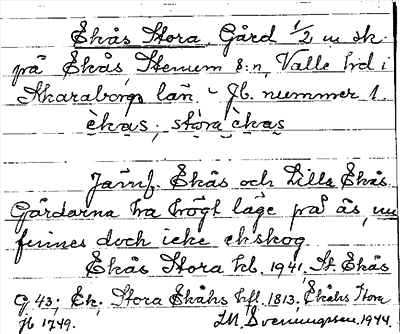 Ekås Stora, Gård 1/2 m sk.
på Ekås, Stenum s:n, Valle hd i
Skaraborgs län. - Jb. nummer 1
èkas, stóra èkas
Jämf. Ekås och Lilla Ekås.
Gårdarna ha högt läge på ås, nu
finnes doch icke ekskog
Ekås Stora kb. 1941, St. Ekås
g 43; Ek; Stora Ekåhs hfl. 1813, Ekåhs Stora
jb 1749. Svenningsson. 1944.